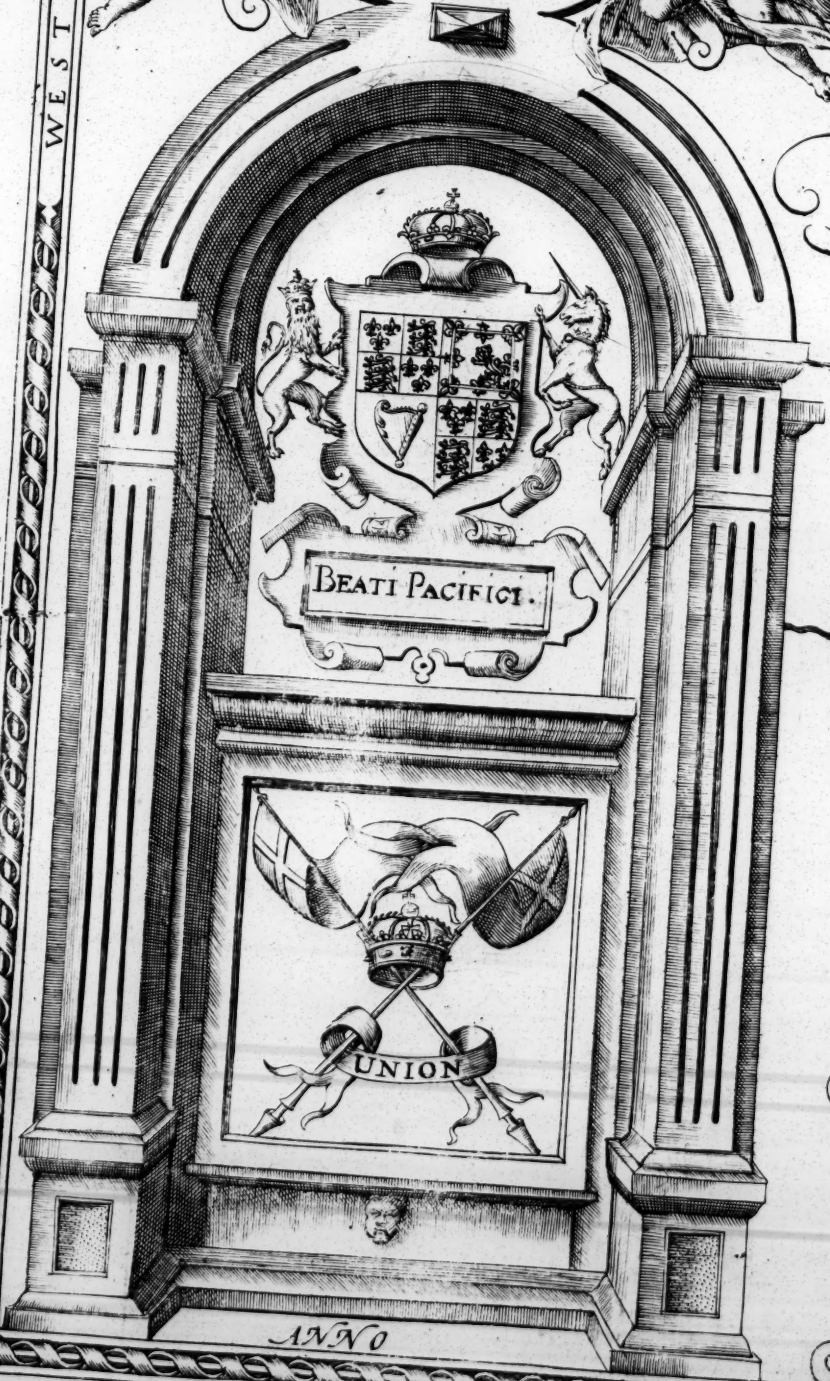 WEST
BEATI PACIFICI.
UNION
ANNO